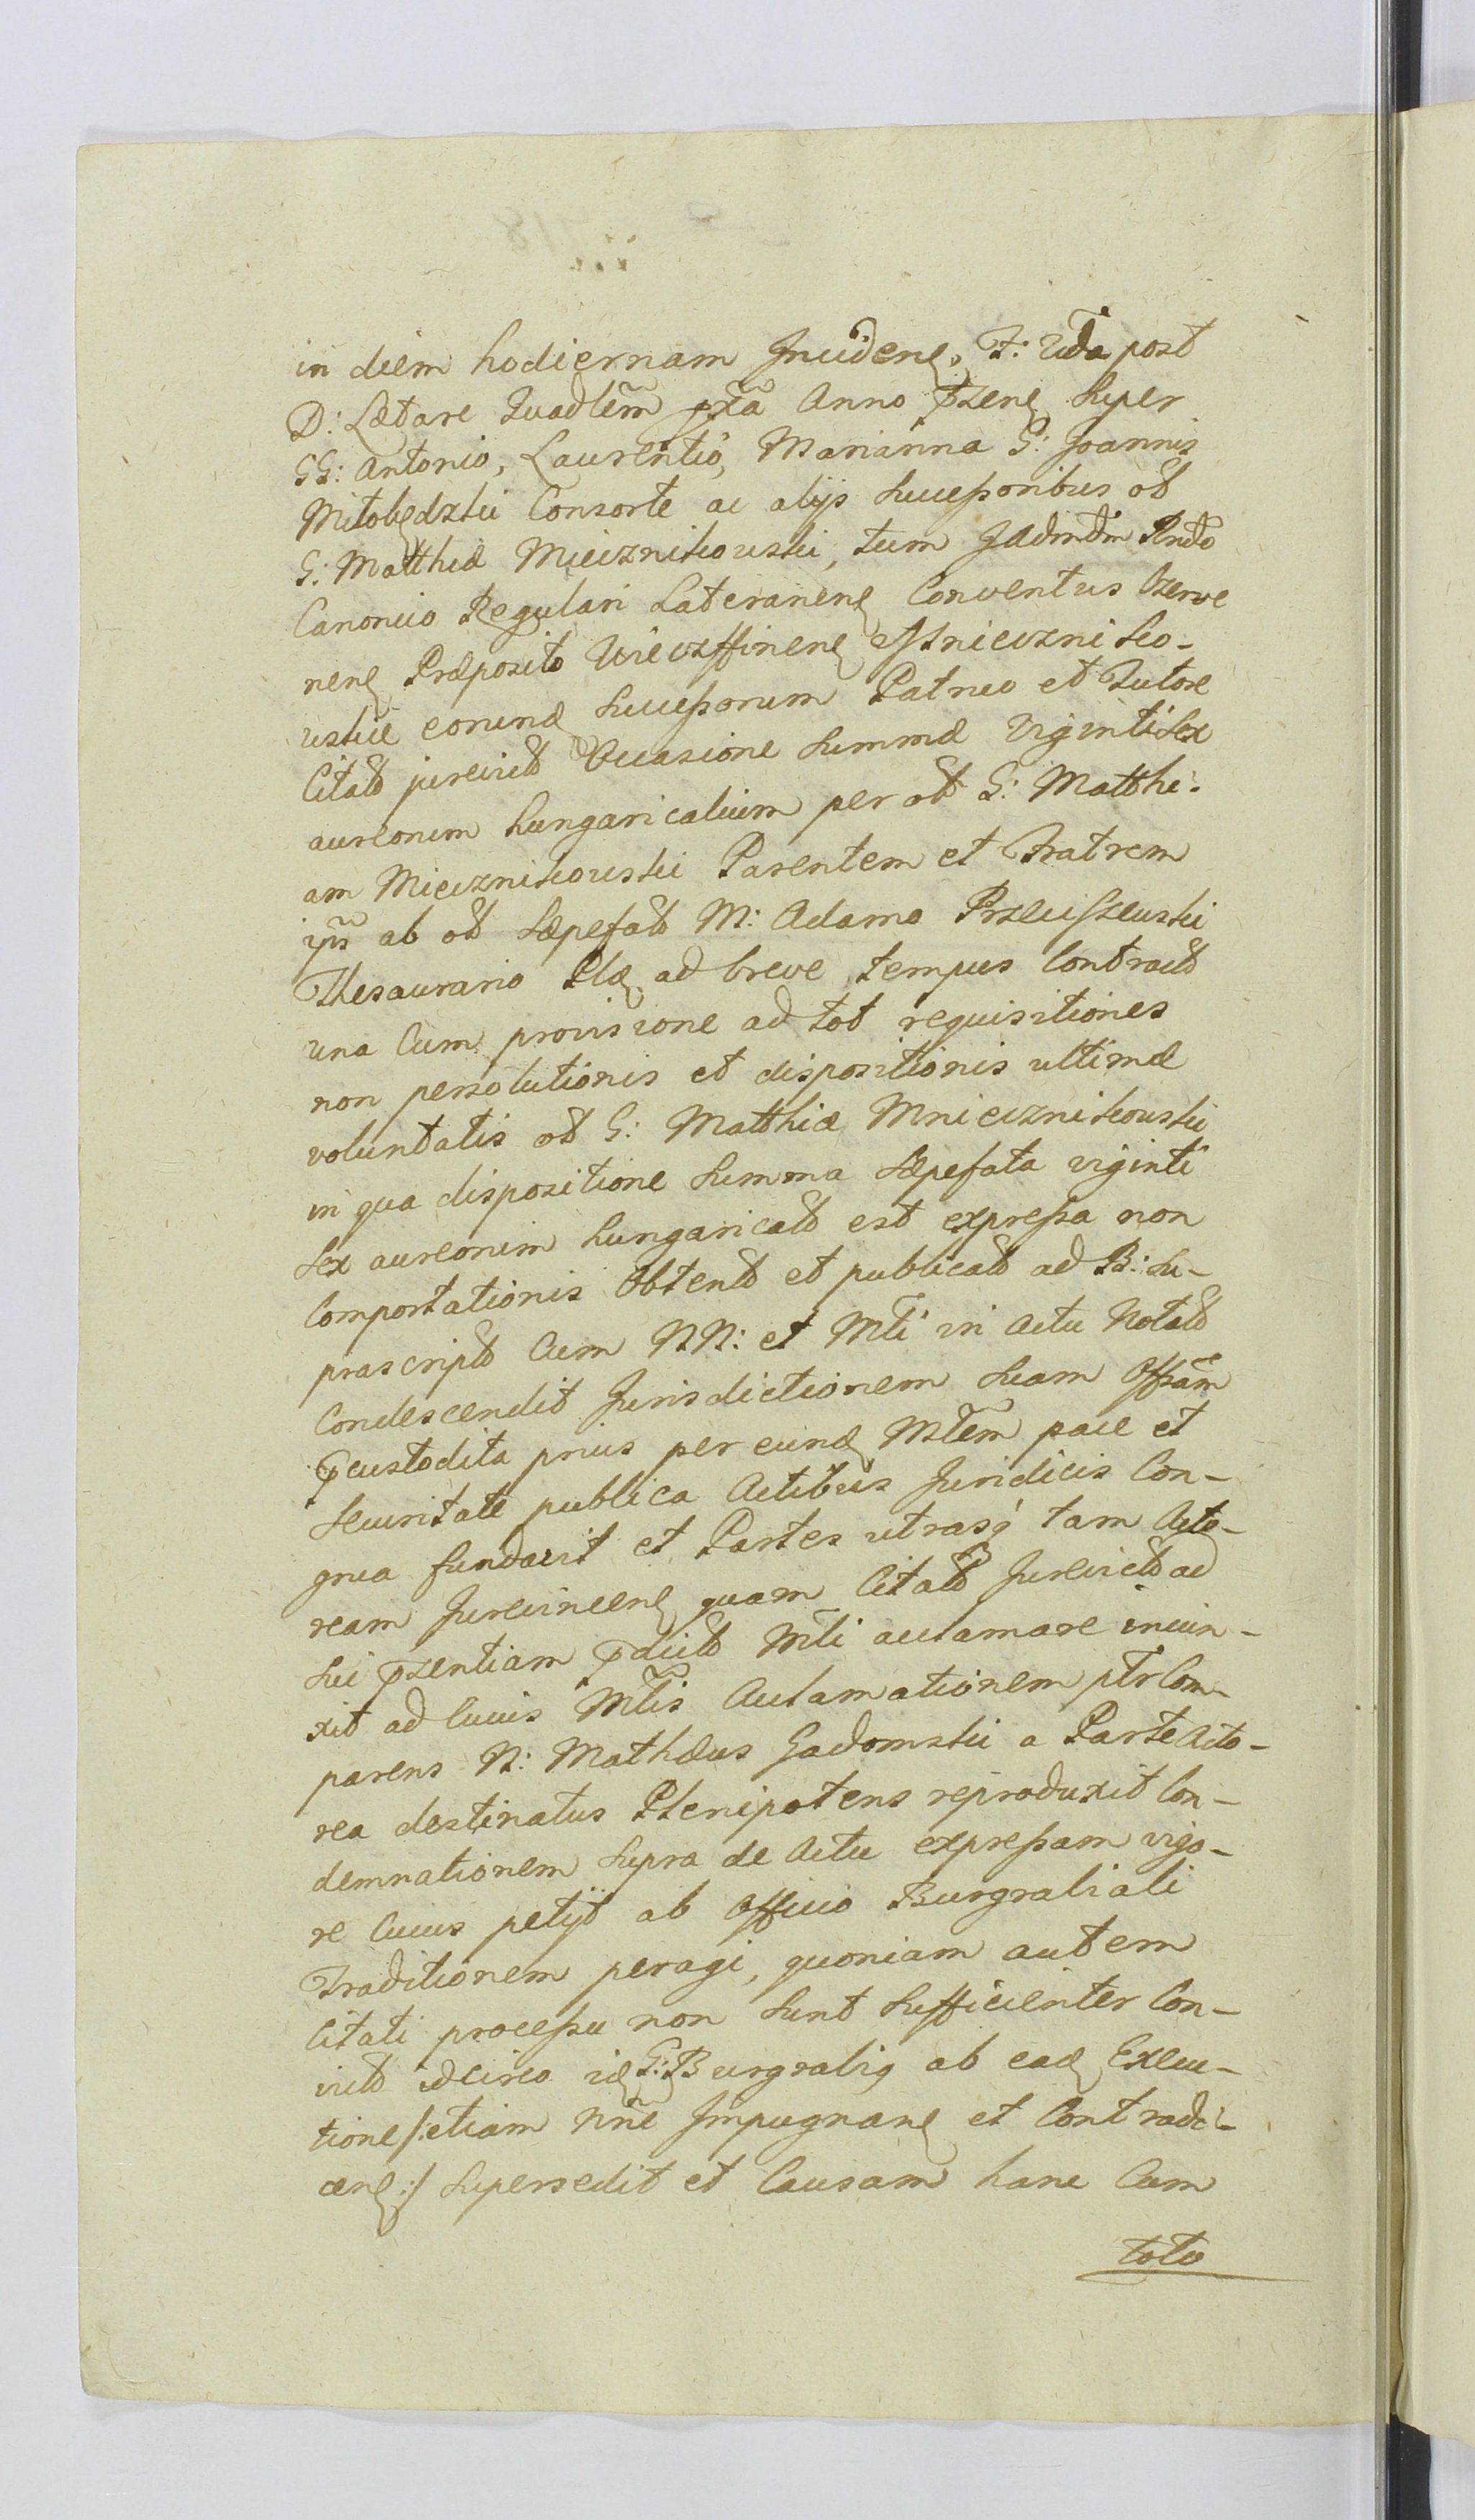 in diem hodiernam Incidenꝭ, F: 2da post
D: Lætare Quadlem pxa Anno pzenꝭ super
GG: Antonio, Laurentio, Marianna G: Joannis
Mitobędzki Consorte ac alijs Successoribus ol
G: Matthiæ Mieiznikowski, tum
Canonico Regulari Lateranenꝭ Conventus Czerwe
nenꝭ Præposito Mniewzniko-
wski eorundꝭ Successorum Patruo et Tutore
Citatꝭ jurevictꝭ Occasione Summæ Viginti Sex
aureorum hungaricalium per olt G: Matthi-
am Mieiznikowski Parentem et Fratrem
ipsrꝭ ab olt Sæpefatꝭ M: Adamo Przeciszewski
Thesaurario Plꝭ ad breve tempus Contractꝭ
una Cum provisione ad tot requisitiones
non persolutionis et dispositionis ultimæ
voluntatis olt G: Matthiæ Mniewznikowski
in qua dispositione Summa Sæpefata viginti
Sex aureorum hungaricalꝭ est expressa non
Comportationis Obtentꝭ et publicatꝭ ad B: Su-
prascriptꝭ Cum NN: et Mli in Actu Notatꝭ
Condescendit Jurisdictionem Suam Offsam
pcustodita prius per eundꝭ Mlem pace et
Securitate publica Actibus Juridicis Con-
grua fundavit et Partes utrasq tam Acto-
ream Jurevincenꝭ quam Citatꝭ Jurevictꝭ ad
Sui pzentiam pdictꝭ Mli acclamare injun-
xit ad Cuius Mlis Acclamationem ptr Com-
parens N: Mathæus Gadomski a Parte Acto-
rea destinatus Plenipotens reproduxit Con-
demnationem Supra de Actu expressam vigo-
re Cuius petijt ab Officio Burgrabiali
Traditionem peragi, quoniam autem
Citati processu non Sunt Sufficienter Con-
victꝭ idcirco idꝭ G: Burgrabiꝭ ab eadꝭ Execu-
tione /: etiam Nne Impugnanꝭ et Contradi-
cenꝭ :/ Supersedit et Causam hanc Cum
toto